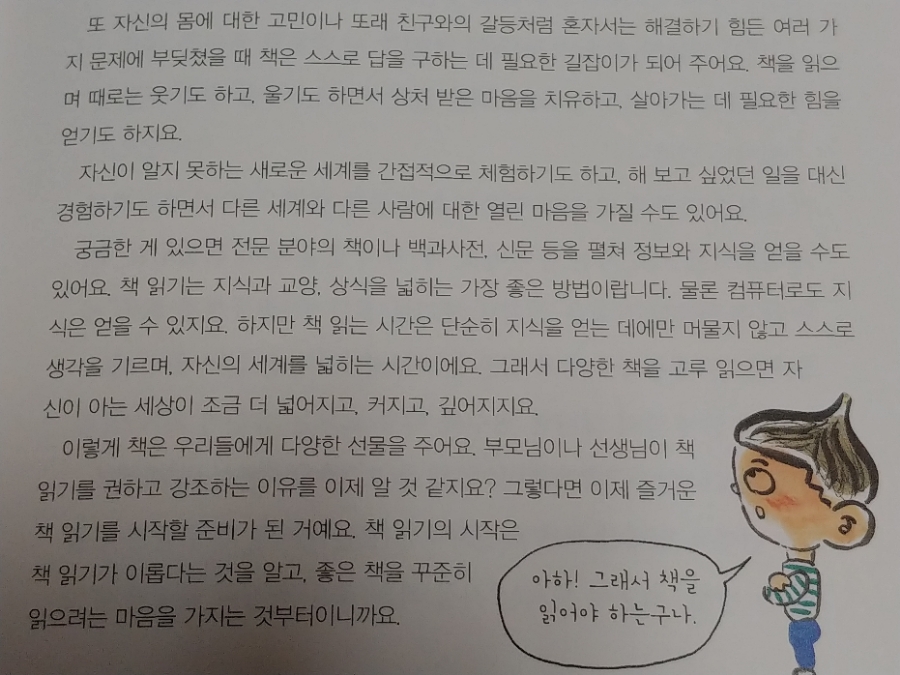 또 자신의 몸에 대한 고민이나 또래 친구와의 갈등처럼 혼자서는 해결하기 힘든 여러 가
지 문제에 부딪쳤을 때 책은 스스로 답을 구하는 데 필요한 길잡이가 되어 주어요. 책을 읽으
며 때로는 웃기도 하고, 울기도 하면서 상처 받은 마음을 치유하고, 살아가는 데 필요한 힘을
얻기도 하지요.
자신이 알지 못하는 새로운 세계를 간접적으로 체험하기도 하고, 해 보고 싶었던 일을 대신
경험하기도 하면서 다른 세계와 다른 사람에 대한 열린 마음을 가질 수도 있어요.
궁금한 게 있으면 전문 분야의 책이나 백과사전, 신문 등을 펼쳐 정보와 지식을 얻을 수도
있어요. 책 읽기는 지식과 교양, 상식을 넓히는 가장 좋은 방법이랍니다. 물론 컴퓨터로도 지
식은 얻을 수 있지요. 하지만 책 읽는 시간은 단순히 지식을 얻는 데에만 머물지 않고 스스로
생각을 기르며, 자신의 세계를 넓히는 시간이에요. 그래서 다양한 책을 고루 읽으면 자
신이 아는 세상이 조금 더 넓어지고, 커지고, 깊어지지요.
이렇게 책은 우리들에게 다양한 선물을 주어요. 부모님이나 선생님이 책
읽기를 권하고 강조하는 이유를 이제 알 것 같지요? 그렇다면 이제 즐거운
책 읽기를 시작할 준비가 된 거예요. 책 읽기의 시작은
책 읽기가 이롭다는 것을 알고, 좋은 책을 꾸준히
읽으려는 마음을 가지는 것부터이니까요.
아하! 그래서 책을
읽어야 하는구나.